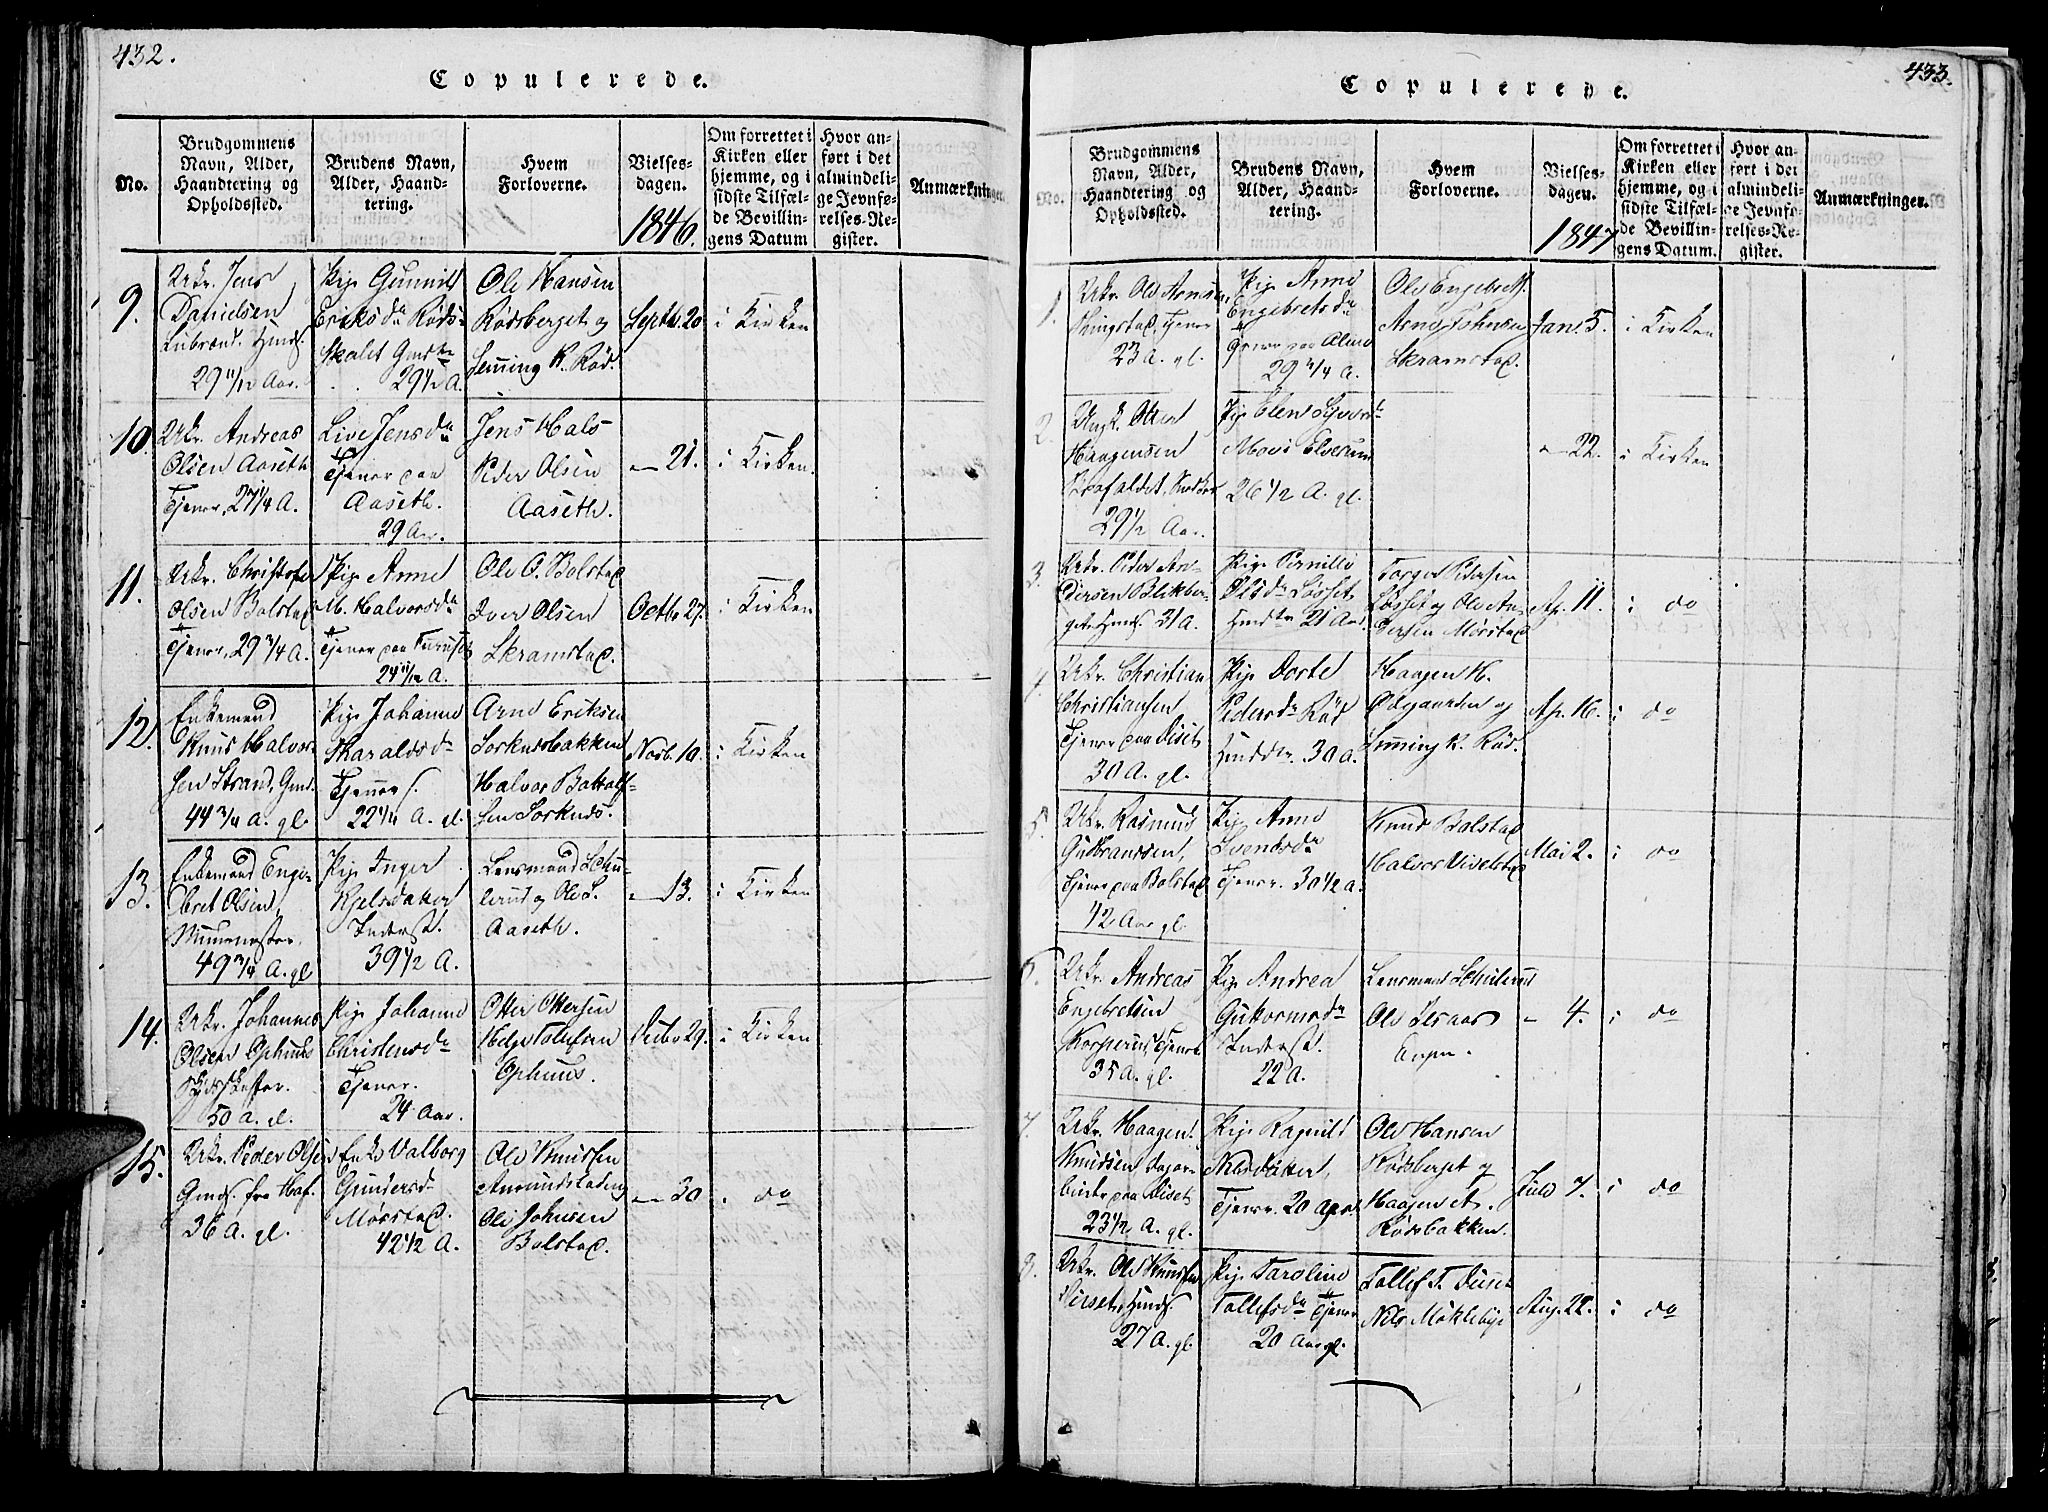 432.
Copulerede.
No.
Brudgommens
Navn, Alder,
Haandtering og
Opholdssted.
Brudens Navn,
Alder, Haand-
tering.
Hvem
Forloverne.
Vielses-
dagen.
1846.
Om forrettet i
Kirken eller
hjemme, og i
sidste Tilfæl-
de Bevillin-
gens Datum
Hvor an-
ført i det
almindeli-
ge Jevnfø-
relses-Re-
gister.
Anmærkninger.
9.
Ukr. Jens
Danielsen
29 11/12 Aar.
Pige Gunnild
Eriksda Røds-
skalet
29 1/2 A.
Ole Hansen
Rødsberget og
Henning K. Rød.
Septb. 20
i Kirken
10.
Ukr. Andreas
Olsen Aaseth
Tjener, 27 1/4 A.
Live Jensda
Tjener paa
Aaseth.
29 Aar.
Jens Hals
Peder Olsen
Aaseth.
— 21.
i Kirken.
11.
Ukr. Christofer
Olsen Bolstad
Tjener, 29 3/4 A.
Pige Anne
M. Halvorsda
Tjener paa Furuset
24 11/12 A.
Ole O. Bolstad
Iver Olsen
Skramstad.
Octbr 27.
i Kirken
12.
Enkemand
Knud Halvor-
sen Strand, Gmd.
44 3/4 A. gl.
Pige Johanne
Haraldsdr
Tjener
22 1/4 A. gl.
Arne Eriksen
Sorknesbakken
Halvor Bottolf-
sen Sorknes.
Novb. 10.
i Kirken
13.
Enkemand Enge-
bret Olsen,
Muurmester.
49 3/4 A. gl
Pige Inger
Kjelsdatter
Inderst.
39 1/2 A.
Lensmand Schu-
lerud og Ole S.
Aaseth.
— 13.
i Kirken
14.
Ukr. Johannes
Olsen Ophuus
50 A. gl.
Pige Johanne
Christensda
Tjener.
24 Aar.
Otter Ottersen
Helge Tolufsen
Ophuus.
Decbr 29.
i Kirken
15.
Ukr. Peder Olsen
Gmd. fra Hof.
36 A. gl.
Enke Valborg
Gundersd
Mørstad.
42 1/2 A.
Ole Knudsen
Amundstaden
Ole Johnsen
Bolstad.
— 30
do
433.
Copulerede.
No.
Brudgommens
Navn, Alder,
Haandtering og
Opholdssted.
Brudens Navn,
Alder, Haand-
tering.
Hvem
Forloverne.
Vielses-
dagen.
1847
Om forrettet i
Kirken eller
hjemme, og i
sidste Tilfæl-
de Bevillin-
gens Datum.
Hvor an-
ført i det
almindeli-
ge Jevnfø-
relses-Re-
gister.
Anmærkninger.
1.
Ukr. Ole Arnesen
Ringstad, Tjener
23 A. gl.
Pige Anne
Engebretsda
Tjener paa Alme
29 3/4 A.
Ole Engebretss.
Arne Johnsen
Skramstad.
Jan. 5.
i Kirken
2.
Ungk. Otter
Haagensen
29 1/2 Aar.
Pige Elen Syversdr
Moe i Elverum
26 1/2 A. gl.
— 22.
i Kirken
3.
Ukr. Peder An-
dersen Blikber-
get Hmd. 31 A.
Pige Pernille
Olsdr Løsset
Hmdtr 21 Aar.
Torger Pedersen
Løsset og Ole An-
dersen Mørstad
Ap. 11.
i do
4.
Ukr. Christian
Christiansen
Tjener paa Diset
30 A. gl.
Pige Dorte
Pedersdr Rød
30 A.
Haagen H.
Ødegaarden og
Henning K. Rød.
Ap. 16.
i do
5.
Ukr. Rasmus
Gudbrandsen,
Tjener paa Bolstad
42 Aar gl.
Pige Anne
Svensda
Tjener. 30 1/2 A.
Knud Bolstad
Halvor Vivelstad
Mai 2.
i do
6.
Ukr. Andreas
Engebretsen
Tjener
35 A. gl.
Pige Andrea
Guttormsda
Inderst.
22 A.
Lensmand Schulerud
Ole Ilsaas
— 4.
i do
7.
Ukr. Haagen
Knudsen
paa Diset
23 1/2 A. gl.
Pige Ragnild
Nilsdatter,
Tjener. 20 Aar
Ole Hansen
Rødsberget og
Haagen A.
Rødsbakken.
Juli 7.
i do
8.
Ukr. Ole Knudsen
Hmd.
27 A. gl.
Pige Caroline
Tollefsda Tjener
20 Aar gl.
Tollef T. Diset
Nils Møklebye
Aug. 22.
i do